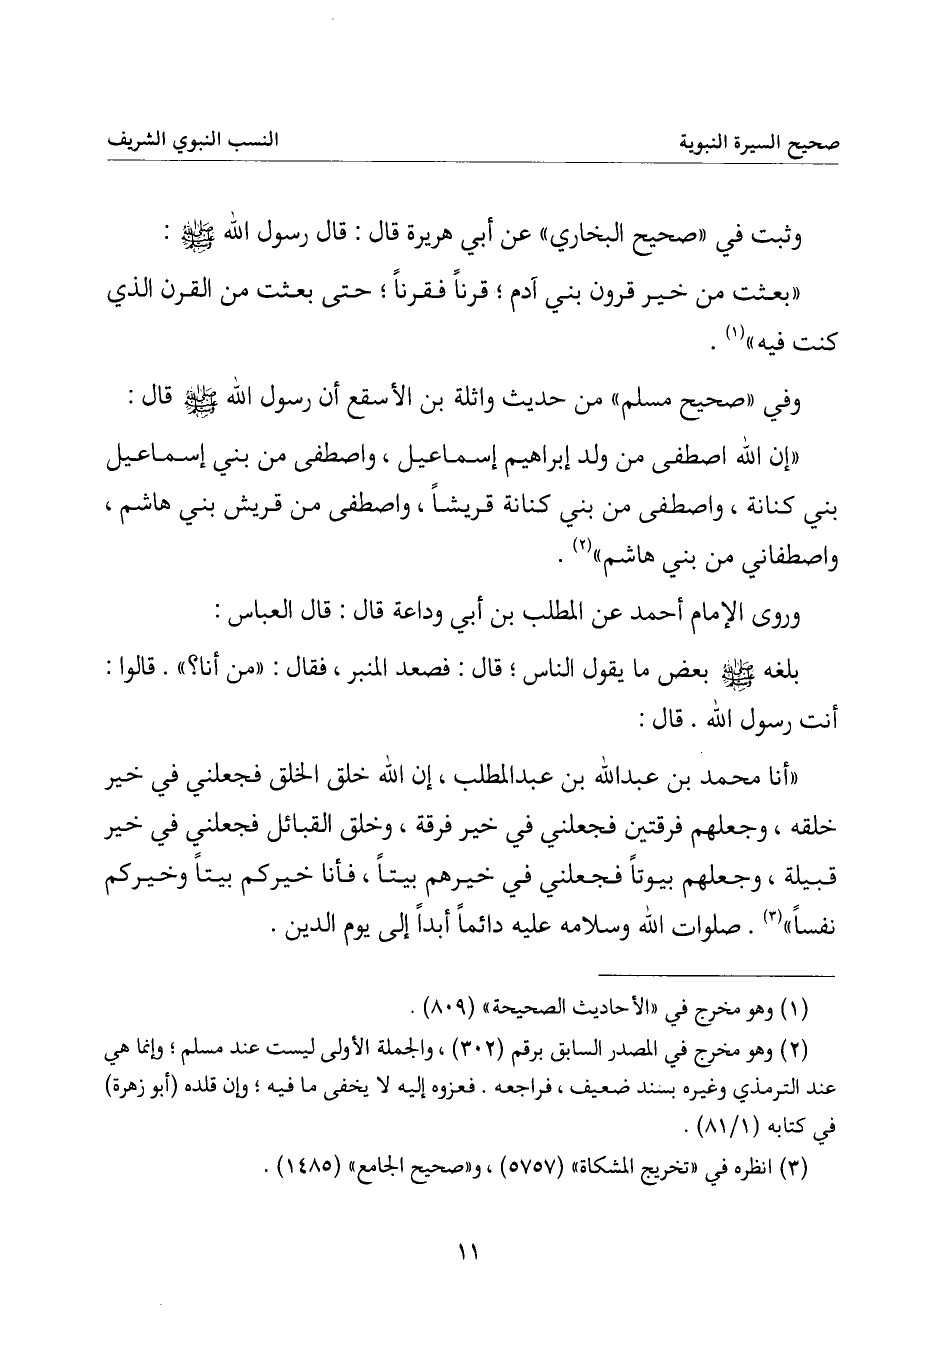 صحيح السيرة النبوية
النسب النبوي الشريف
وثبت في «صحيح البخاري» عن أبي هريرة قال : قال رسول الله ﷺ :
«بعثت من خير قرون بني آدم ؛ قرناً فقرناً ؛ حتى بعثت من القرن الذي
كنت فيه»(١) .
وفي «صحيح مسلم» من حديث واثلة بن الأسقع أن رسول الله ﷺ قال :
«إن الله اصطفى من ولد إبراهيم إسماعيل ، واصطفى من بني إسماعيل
بني كنانة ، واصطفى من بني كنانة قريشاً ، واصطفى من قريش بني هاشم ،
واصطفاني من بني هاشم»(٢) .
وروى الإمام أحمد عن المطلب بن أبي وداعة قال : قال العباس :
بلغه ﷺ بعض ما يقول الناس ؛ قال : فصعد المنبر ، فقال : «من أنا؟» . قالوا :
أنت رسول الله . قال :
«أنا محمد بن عبدالله بن عبدالمطلب ، إن الله خلق الخلق فجعلني في خير
خلقه ، وجعلهم فرقتين فجعلني في خير فرقة ، وخلق القبائل فجعلني في خير
قبيلة ، وجعلهم بيوتاً فجعلني في خيرهم بيتاً ، فأنا خيركم بيتاً وخيركم
نفساً»(٣) . صلوات الله وسلامه عليه دائماً أبداً إلى يوم الدين .
(١) وهو مخرج في «الأحاديث الصحيحة» (٨٠٩) .
(٢) وهو مخرج في المصدر السابق برقم (٣٠٢) ، والجملة الأولى ليست عند مسلم ؛ وإنما هي
عند الترمذي وغيره بسند ضعيف ، فراجعه . فعزوه إليه لا يخفى ما فيه ؛ وإن قلده (أبو زهرة)
في كتابه (٨١/١) .
(٣) انظره في «تخريج المشكاة» (٥٧٥٧) ، و«صحيح الجامع» (١٤٨٥) .
١١